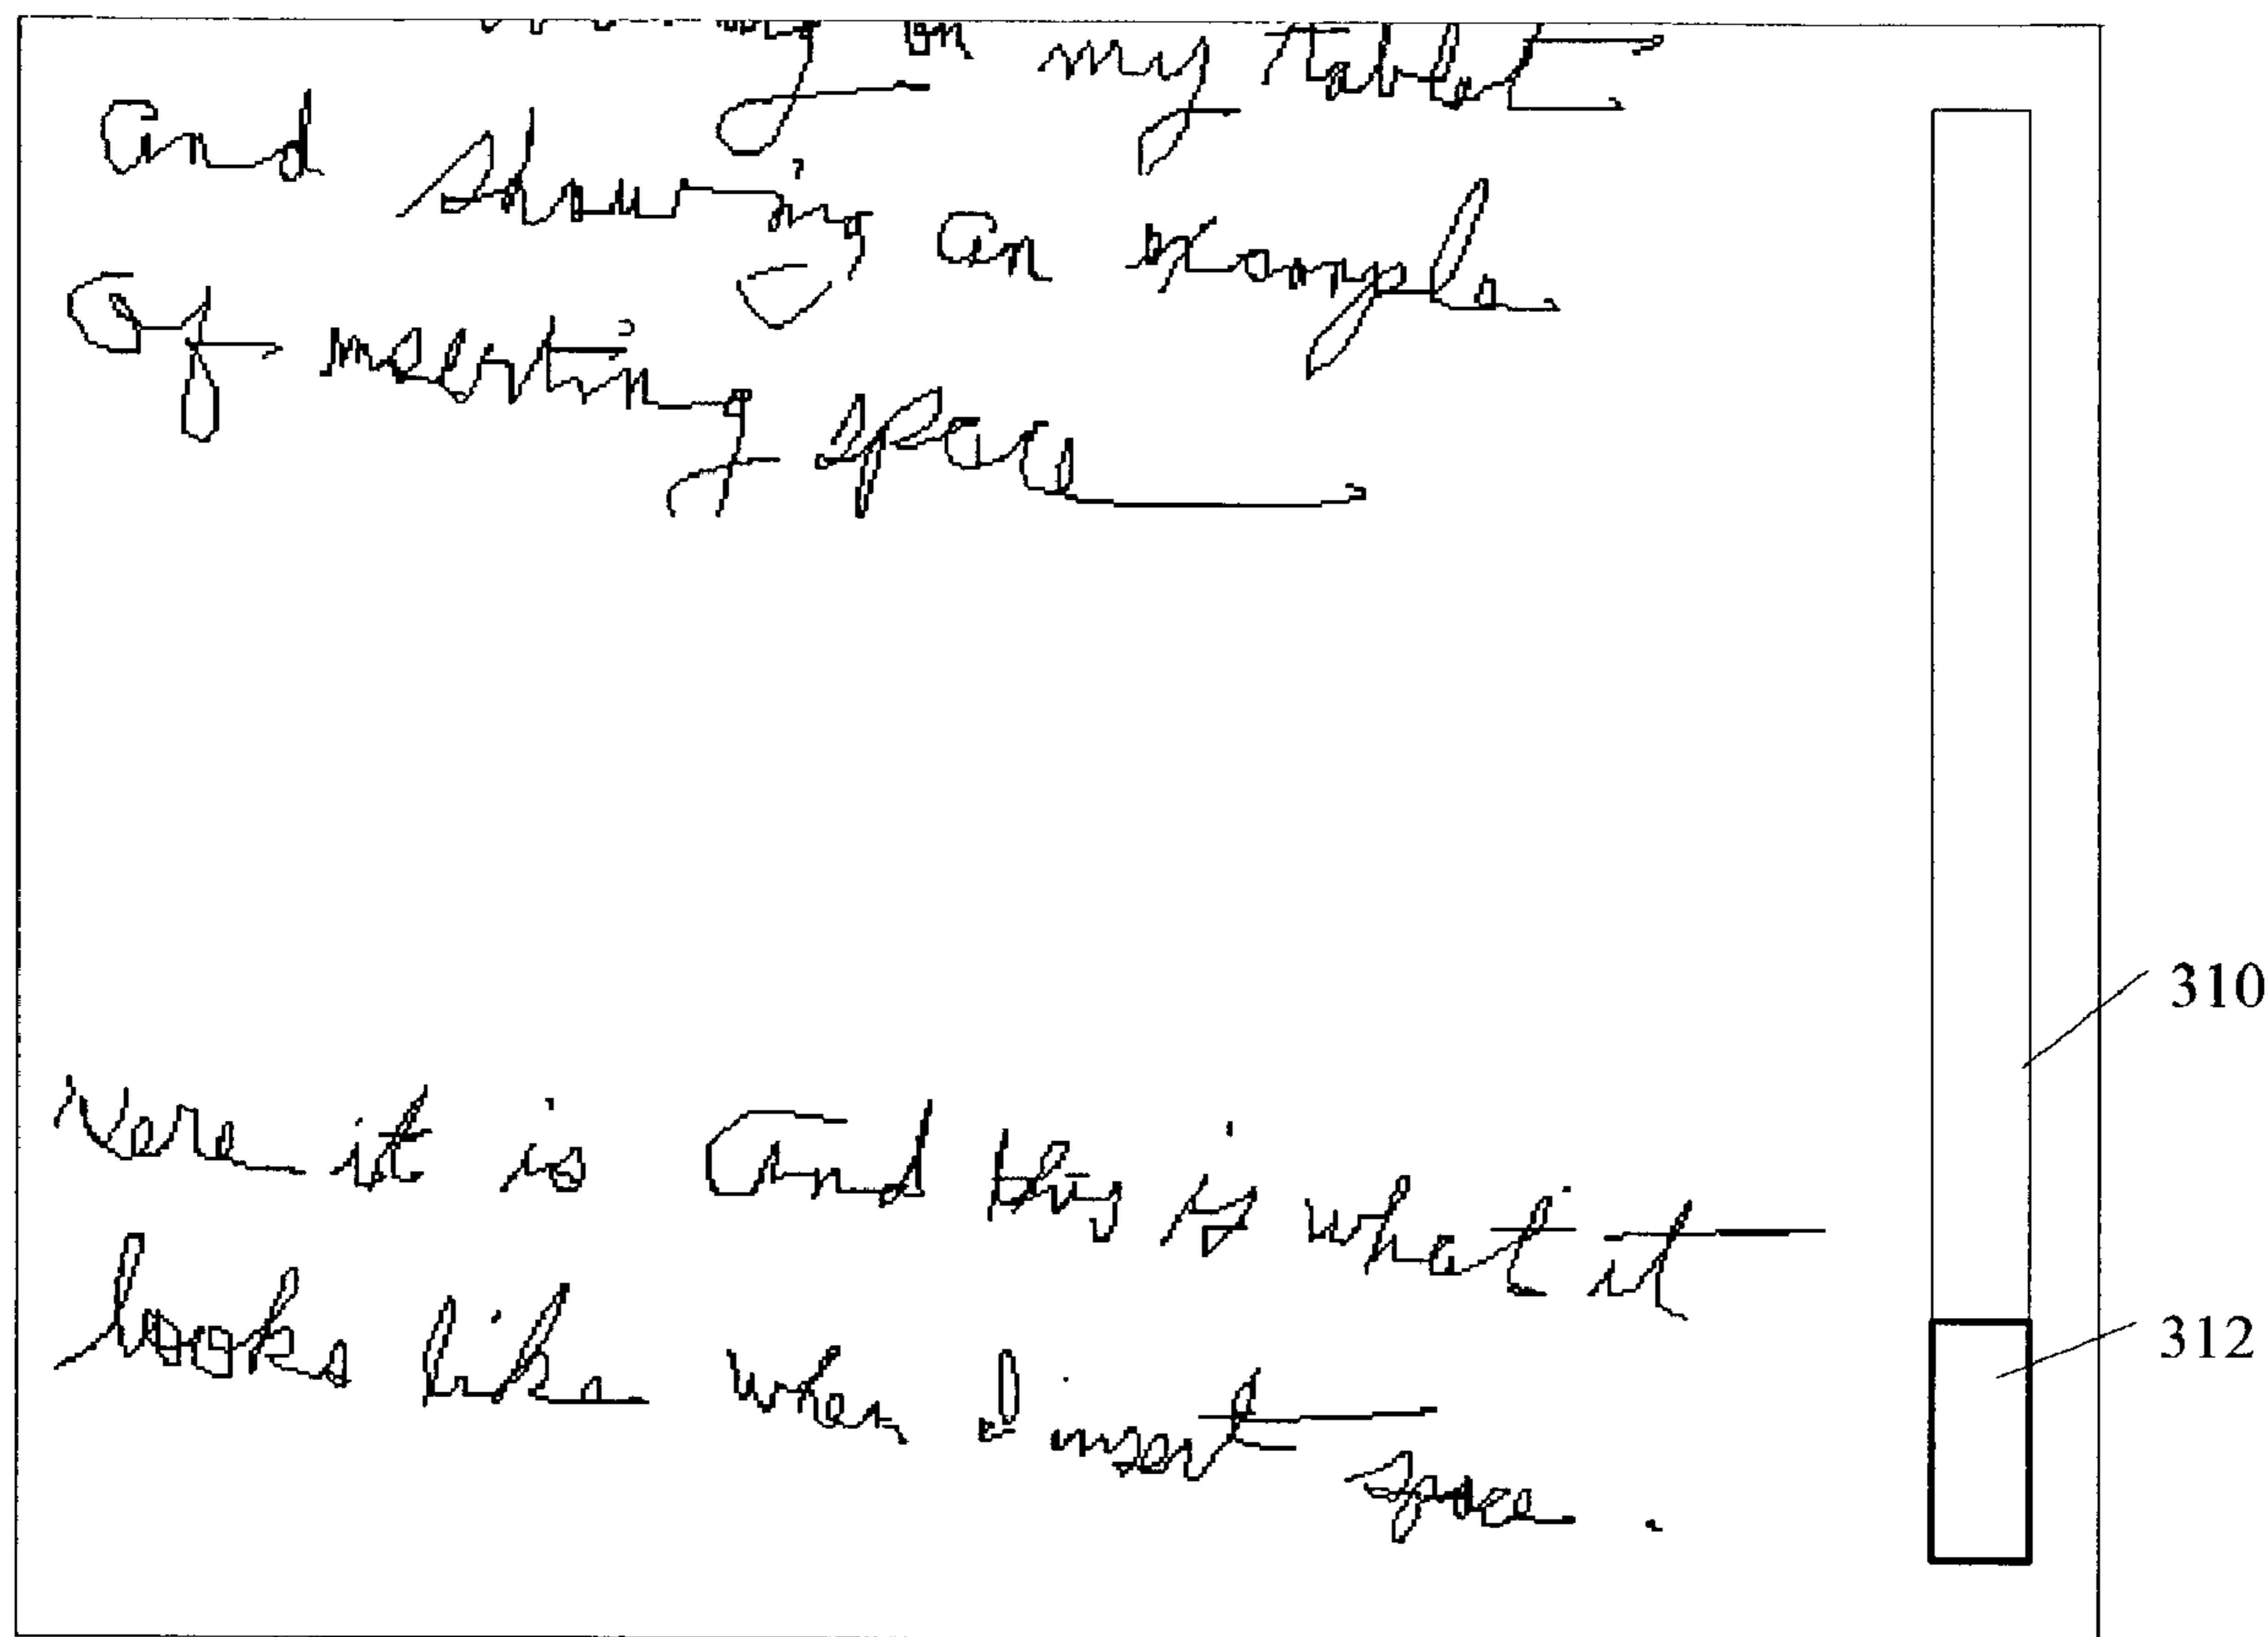 on my tablet
and showing an example
of inserting space
310
Here it is and this is what it
312
looks like when I insert
space .